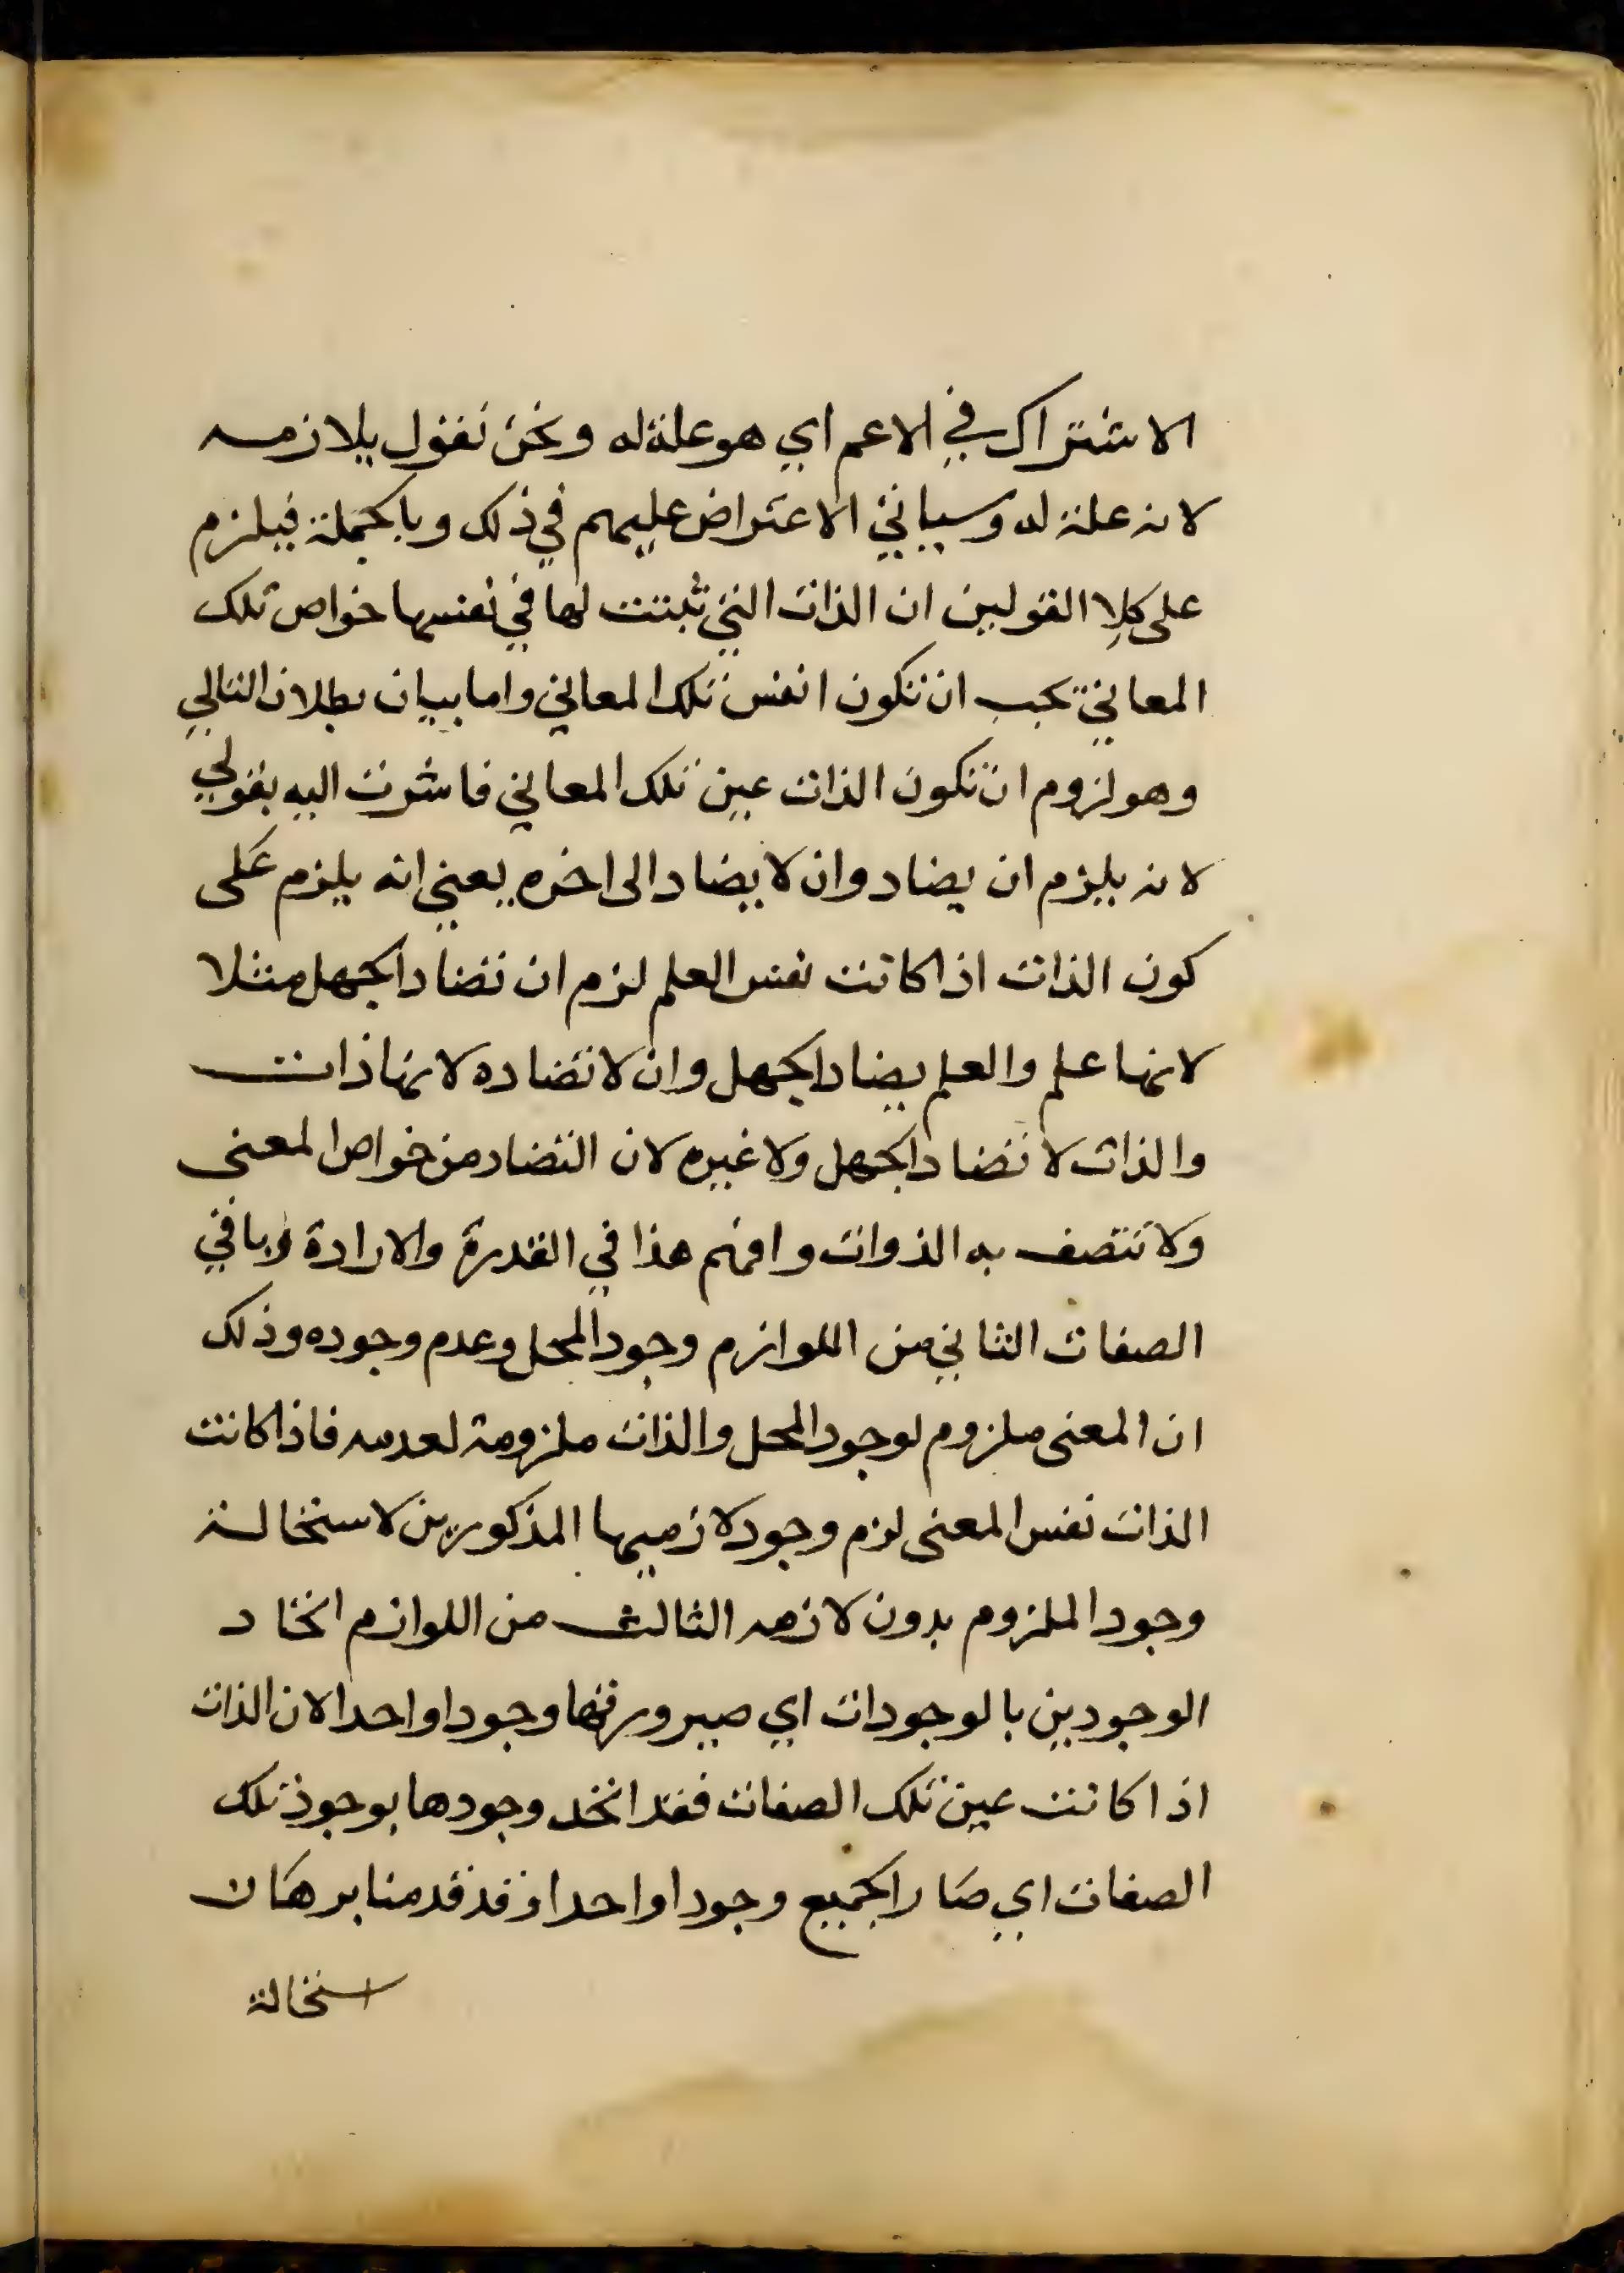 الاشتراك في الاعم اي هو علة له ونحن نقول يلازمه
لانه علة له وسياتي الاعتراض عليهم في ذلك وبالجملة فيلزم
على كلا القولين ان الذات التي ثبتت لها في نفسها خواص تلك
المعاني تجب ان تكون انفس تلك المعاني واما بيان بطلان التالي
وهو لزوم ان تكون الذات عين تلك المعاني فاشرت اليه بقولي
لانه يلزم ان يضاد وان لا يضاد الى اخره يعني انه يلزم على
كون الذات اذا كانت نفس العلم لزم ان تضاد الجهل مثلا
لانها علم والعلم يضاد الجهل وان لا تضاده لانها ذات
والذات لا تضاد الجهل ولا غيره لان التضاد من خواص المعنى
ولا تتصف به الذوات وافهم هذا في القدرة والارادة وباقي
الصفات الثاني من اللوازم وجود المحل وعدم وجوده وذلك
ان المعنى ملزوم لوجود المحل والذات ملزومة لعدمه فاذا كانت
الذات نفس المعنى لزم وجود لازميها المذكورين لاستحالة
وجود الملزوم بدون لازمه الثالث من اللوازم اتحاد
الوجودين بالوجودات اي صيرورتها وجودا واحدا لان الذات
اذا كانت عين تلك الصفات فقد اتحد وجودها بوجود تلك
الصفات اي صار الجميع وجودا واحدا وقد قدمنا برهان
استحالة